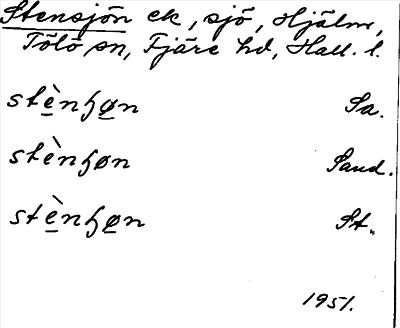 Stensjön ek, sjö, Hjälm,
Tölö sn, Fjäre hd, Hall. l.
stè̱nɧø̱n Sa.
stènɧøn Sand.
stè̱nɧø̱n St.
1951.